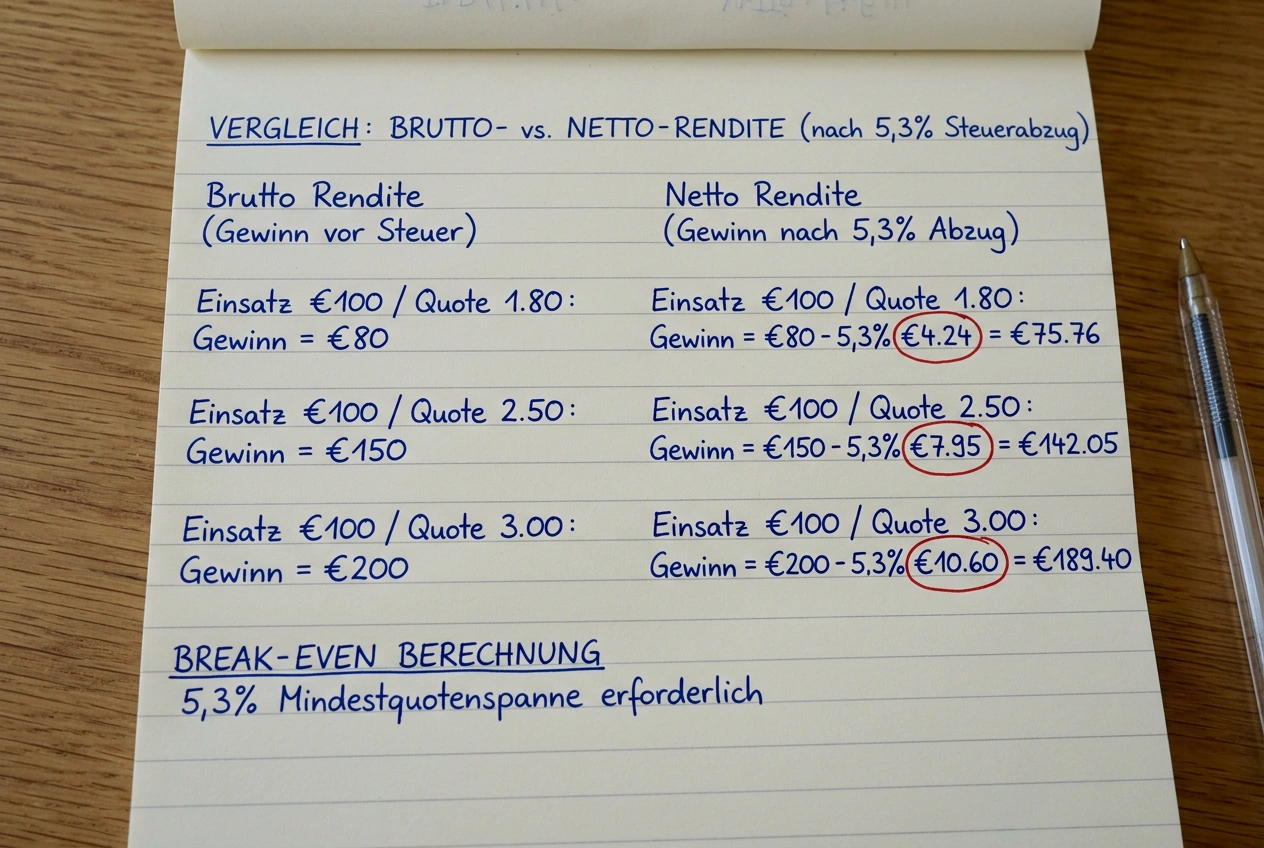 VERGLEICH: BRUTTO- vs. NETTO-RENDITE (nach 5,3% Steuerabzug)
Brutto Rendite
(Gewinn vor Steuer)
Einsatz €100 / Quote 1.80:
Gewinn = €80
Einsatz €100 / Quote 2.50:
Gewinn = €150
Einsatz €100 / Quote 3.00:
Gewinn = €200
Netto Rendite
(Gewinn nach 5,3% Abzug)
Einsatz €100 / Quote 1.80:
Gewinn = €80 - 5,3% €4.24 = €75.76
Einsatz €100 / Quote 2.50:
Gewinn = €150 - 5,3% €7.95 = €142.05
Einsatz €100 / Quote 3.00:
Gewinn = €200 - 5,3% €10.60 = €189.40
BREAK-EVEN BERECHNUNG
5,3% Mindestquotenspanne erforderlich